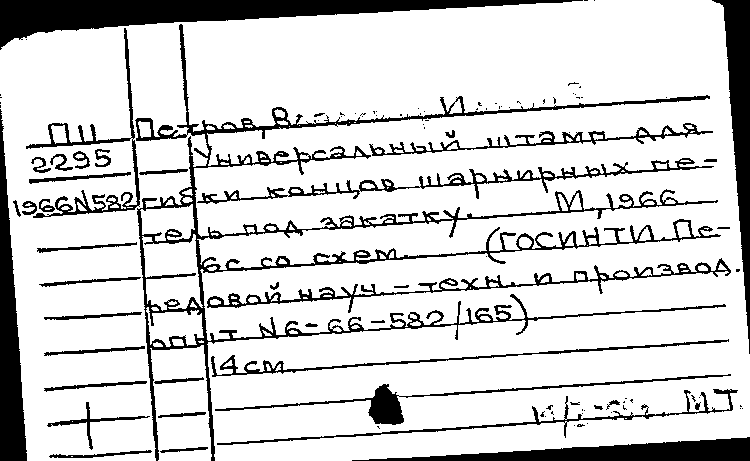 ПII Петров,
2295 Универсальный штамп для
1966N582 гибки концов шарнирных пе-
тель под закатку. М., 1966.
6с со схем. (ГОСИНТИ. Пе-
редовой науч.-техн. и производ.
опыт N6-66-582/165).
14см.
М.Т.